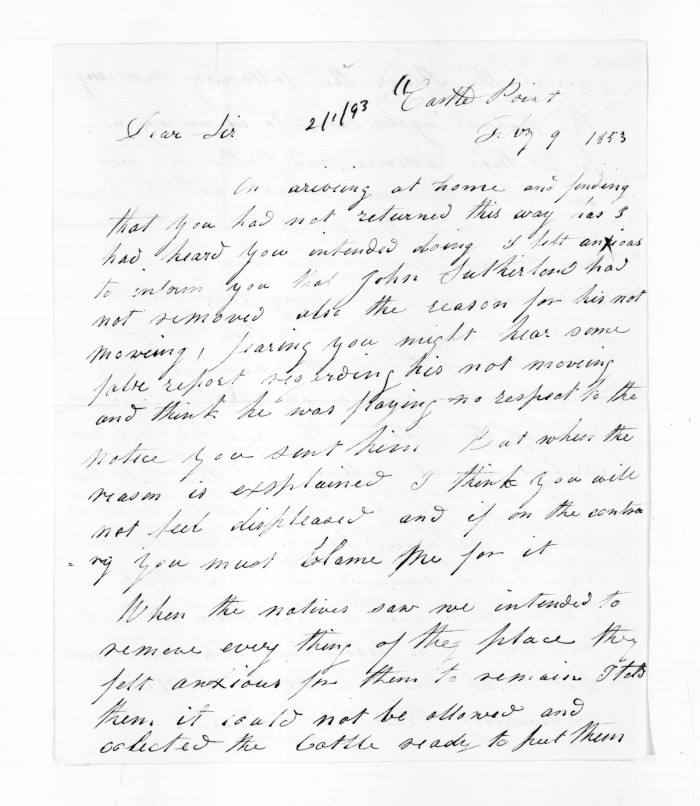 Castle Point
2/1/93
Dear Sir Feby 9 1853
On ariveing at home and finding
that you had not returned this way has I
had heard you intended doing I felt anxious
to inform you that John Sutherland had
not removed also the reason for his not
moveing, fearing you might hear some
false report regarding his not moveing
and think he was paying no respect to the
notice you sent him But when the
reason is exsplained I think you will
not feel displeased and if on the contra
=ry you must blame me for it
When the natives saw we intended to
remove every thing of they place they
felt anxious for them to remain I told
them it could not be allowed and
colected the Cattle ready to put them